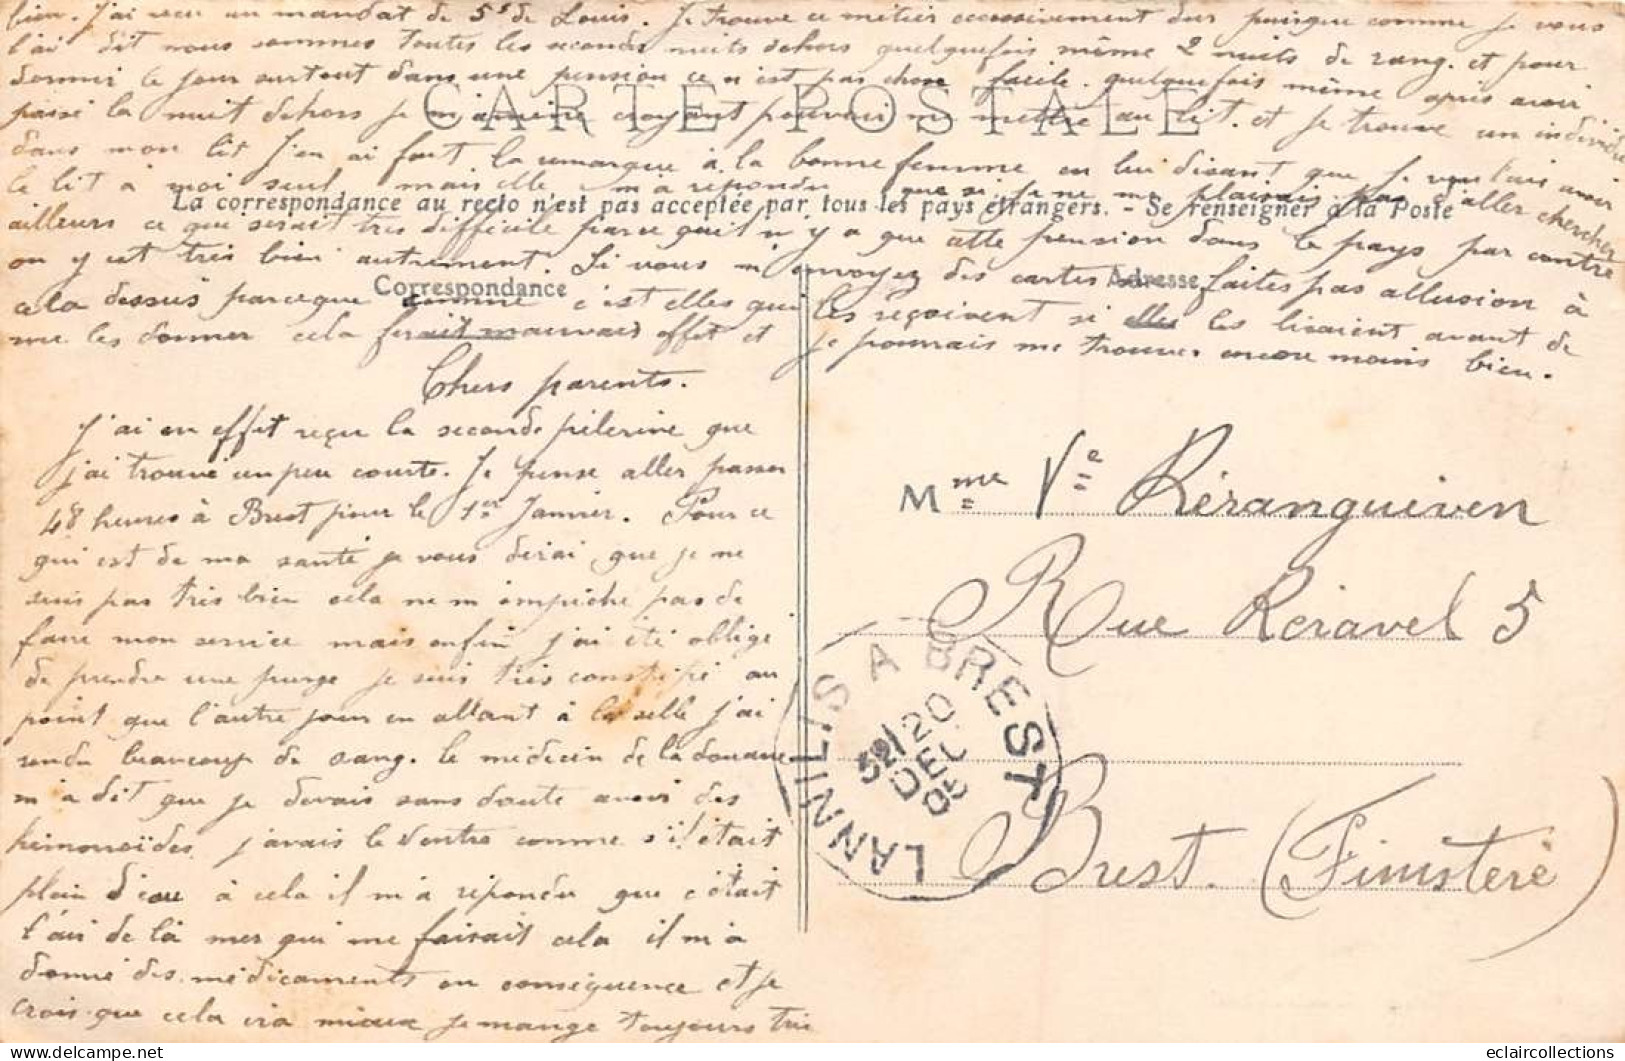 bien. J'ai reçu un mandat de 5f de Louis. Je trouve ce métier excessivement dur puisque comme je vous
l'ai dit nous sommes toutes les seconde nuits dehors quelquefois même 2 nuits de rang. et pour
dormir le jour surtout dans une pension ce n'est pas chose facile. quelquefois même après avoir
passé la nuit dehors je m'amène croyant pouvoir me mettre au lit. et je trouve un individu
dans mon lit J'en ai fait la remarque à la bonne femme en lui disant que je voulais avoir
le lit à moi seul, mais elle m'a répondu que si je ne me plaisais pas d'aller chercher
ailleurs ce que serait très difficile parce qu'il n'y a que cette pension dans le pays par contre
on y est très bien autrement. Si vous m'envoyez des cartes faites pas allusion à
cela dessus parceque comme c'est elles qui les reçoivent si elles les lisaient avant de
me les donner cela ferait mauvais effet et je pourrais me trouver encore moins bien.
CARTE POSTALE
La correspondance au recto n'est pas acceptée par tous les pays étrangers. - Se renseigner à la Poste
Correspondance
Adresse
Chers parents.
J'ai en effet reçu la seconde pélerine que
j'ai trouvé un peu courte. Je pense aller passer
48 heures à Brest pour le 1er Janvier. Pour ce
qui est de ma santé je vous dirai que je ne
suis pas très bien cela ne m'empêche pas de
faire mon service mais enfin j'ai été obligé
de prendre une purge je suis très constipé au
point que l'autre jour en allant à la selle j'ai
rendu beaucoup de sang. le médecin de la douane
m'a dit que je devais sans doute avoir des
hémorroïdes, j'avais le ventre comme s'il était
plein d'eau à cela il m'a répondu que c'était
l'air de la mer qui me faisait cela il m'a
donné des médicaments en conséquence et je
crois que cela ira mieux je mange toujours très
Mme Ve Kéranguiven
Rue Kéravel 5
Brest. (Finistère)
LANNILIS A BREST
20
DEC
05
eclaircollections